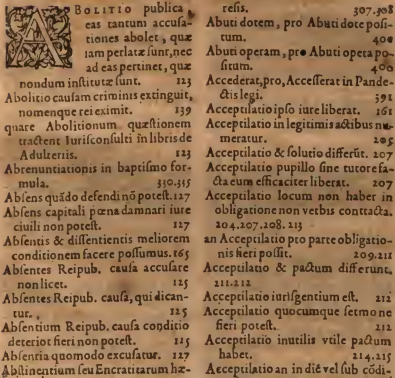 ABOLITIO publica
eas tantum accusa-
tiones abolet, quæ
iam perlatæ sunt, nec
ad eas pertinet, quæ
nondum institutæ sunt. 123
Abolitio causam criminis extinguit,
nomenque rei eximit. 139
quare Abolitionum quæstionem
tractent Iurisconsulti in libris de
Adulteriis. 123
Abrenuntiationis in baptismo for-
mula. 350.355
Absens quãdo defendi nõ potest. 127
Absens capitali pœna damnari iure
ciuili non potest. 127
Absentis & dissentientis meliorem
conditionem facere possumus. 165
Absentes Reipub. causa accusare
non licet. 125
Absentes Reipub. causa, qui dican-
tur. 125
Absentium Reipub. causa conditio
deterior fieri non potest. 125
Absentia quomodo excusatur. 127
Abstinentium seu Encratitarum hæ-
resis. 307.308
Abuti dotem, pro Abuti dote posi-
tum. 400
Abuti operam, pro Abuti opera po-
situm. 400
Accederat, pro, Accesserat in Pande-
ctis legi. 391
Acceptilatio ipso iure liberat. 161
Acceptilatio in legitimis actibus nu-
meratur. 205
Acceptilatio & solutio differũt. 207
Acceptilatio pupillo sine tutore fa-
cta eum efficaciter liberat. 207
Acceptilatio locum non haber in
obligatione non verbis contracta.
204.207.208.213
an Acceptilatio pro parte obligatio-
nis fieri possit. 209.211
Acceptilatio & pactum differunt.
211.212
Acceptilatio iuris gentium est. 212
Acceptilatio quocumque sermone
fieri potest. 212
Acceptilatio inutilis vtile pactum
habet. 214.215
Acceptilatio an in diẽ vel sub cõdi-